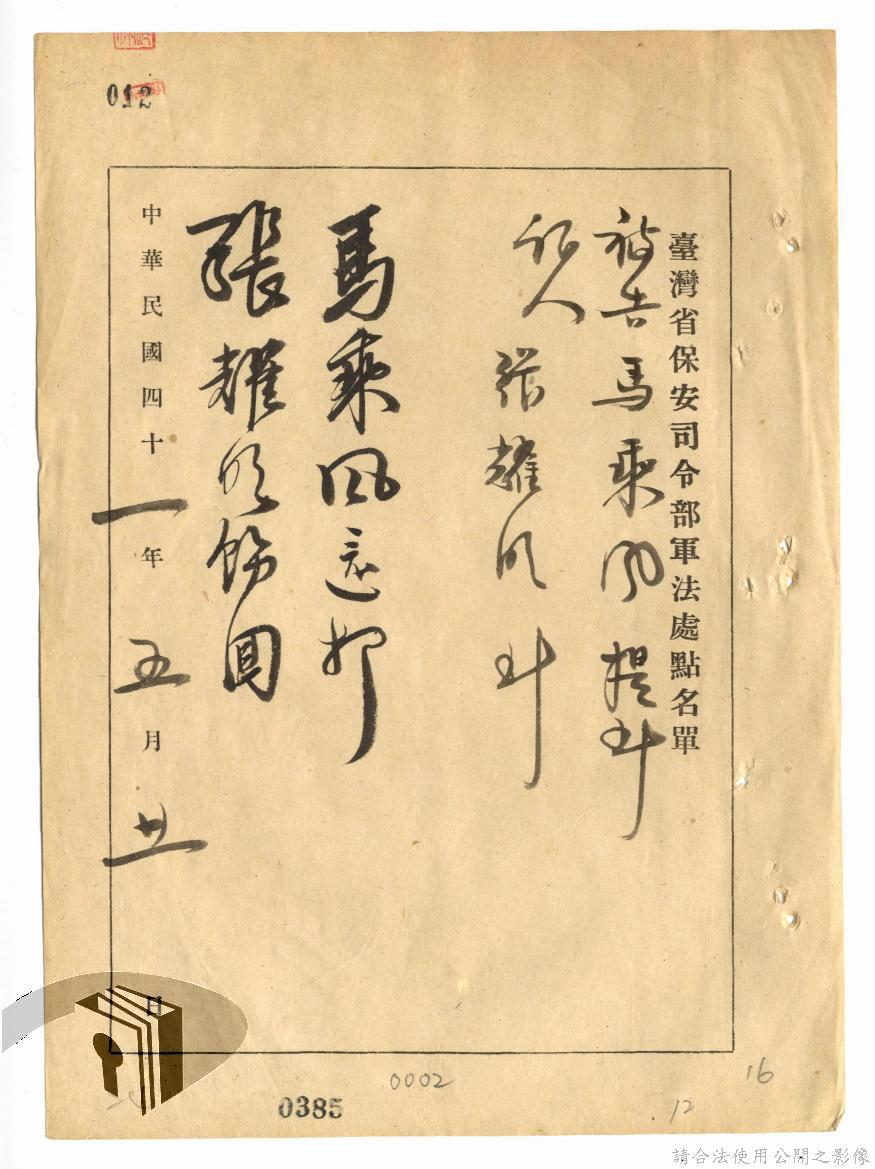 012
臺灣省保安司令部軍法處點名單
被告馬乘風提到
証人張耀明到
馬乘風還押
張耀明飭回
中華民國四十一年五月廿一日
0002
0385
12
16
請合法使用公開之影像